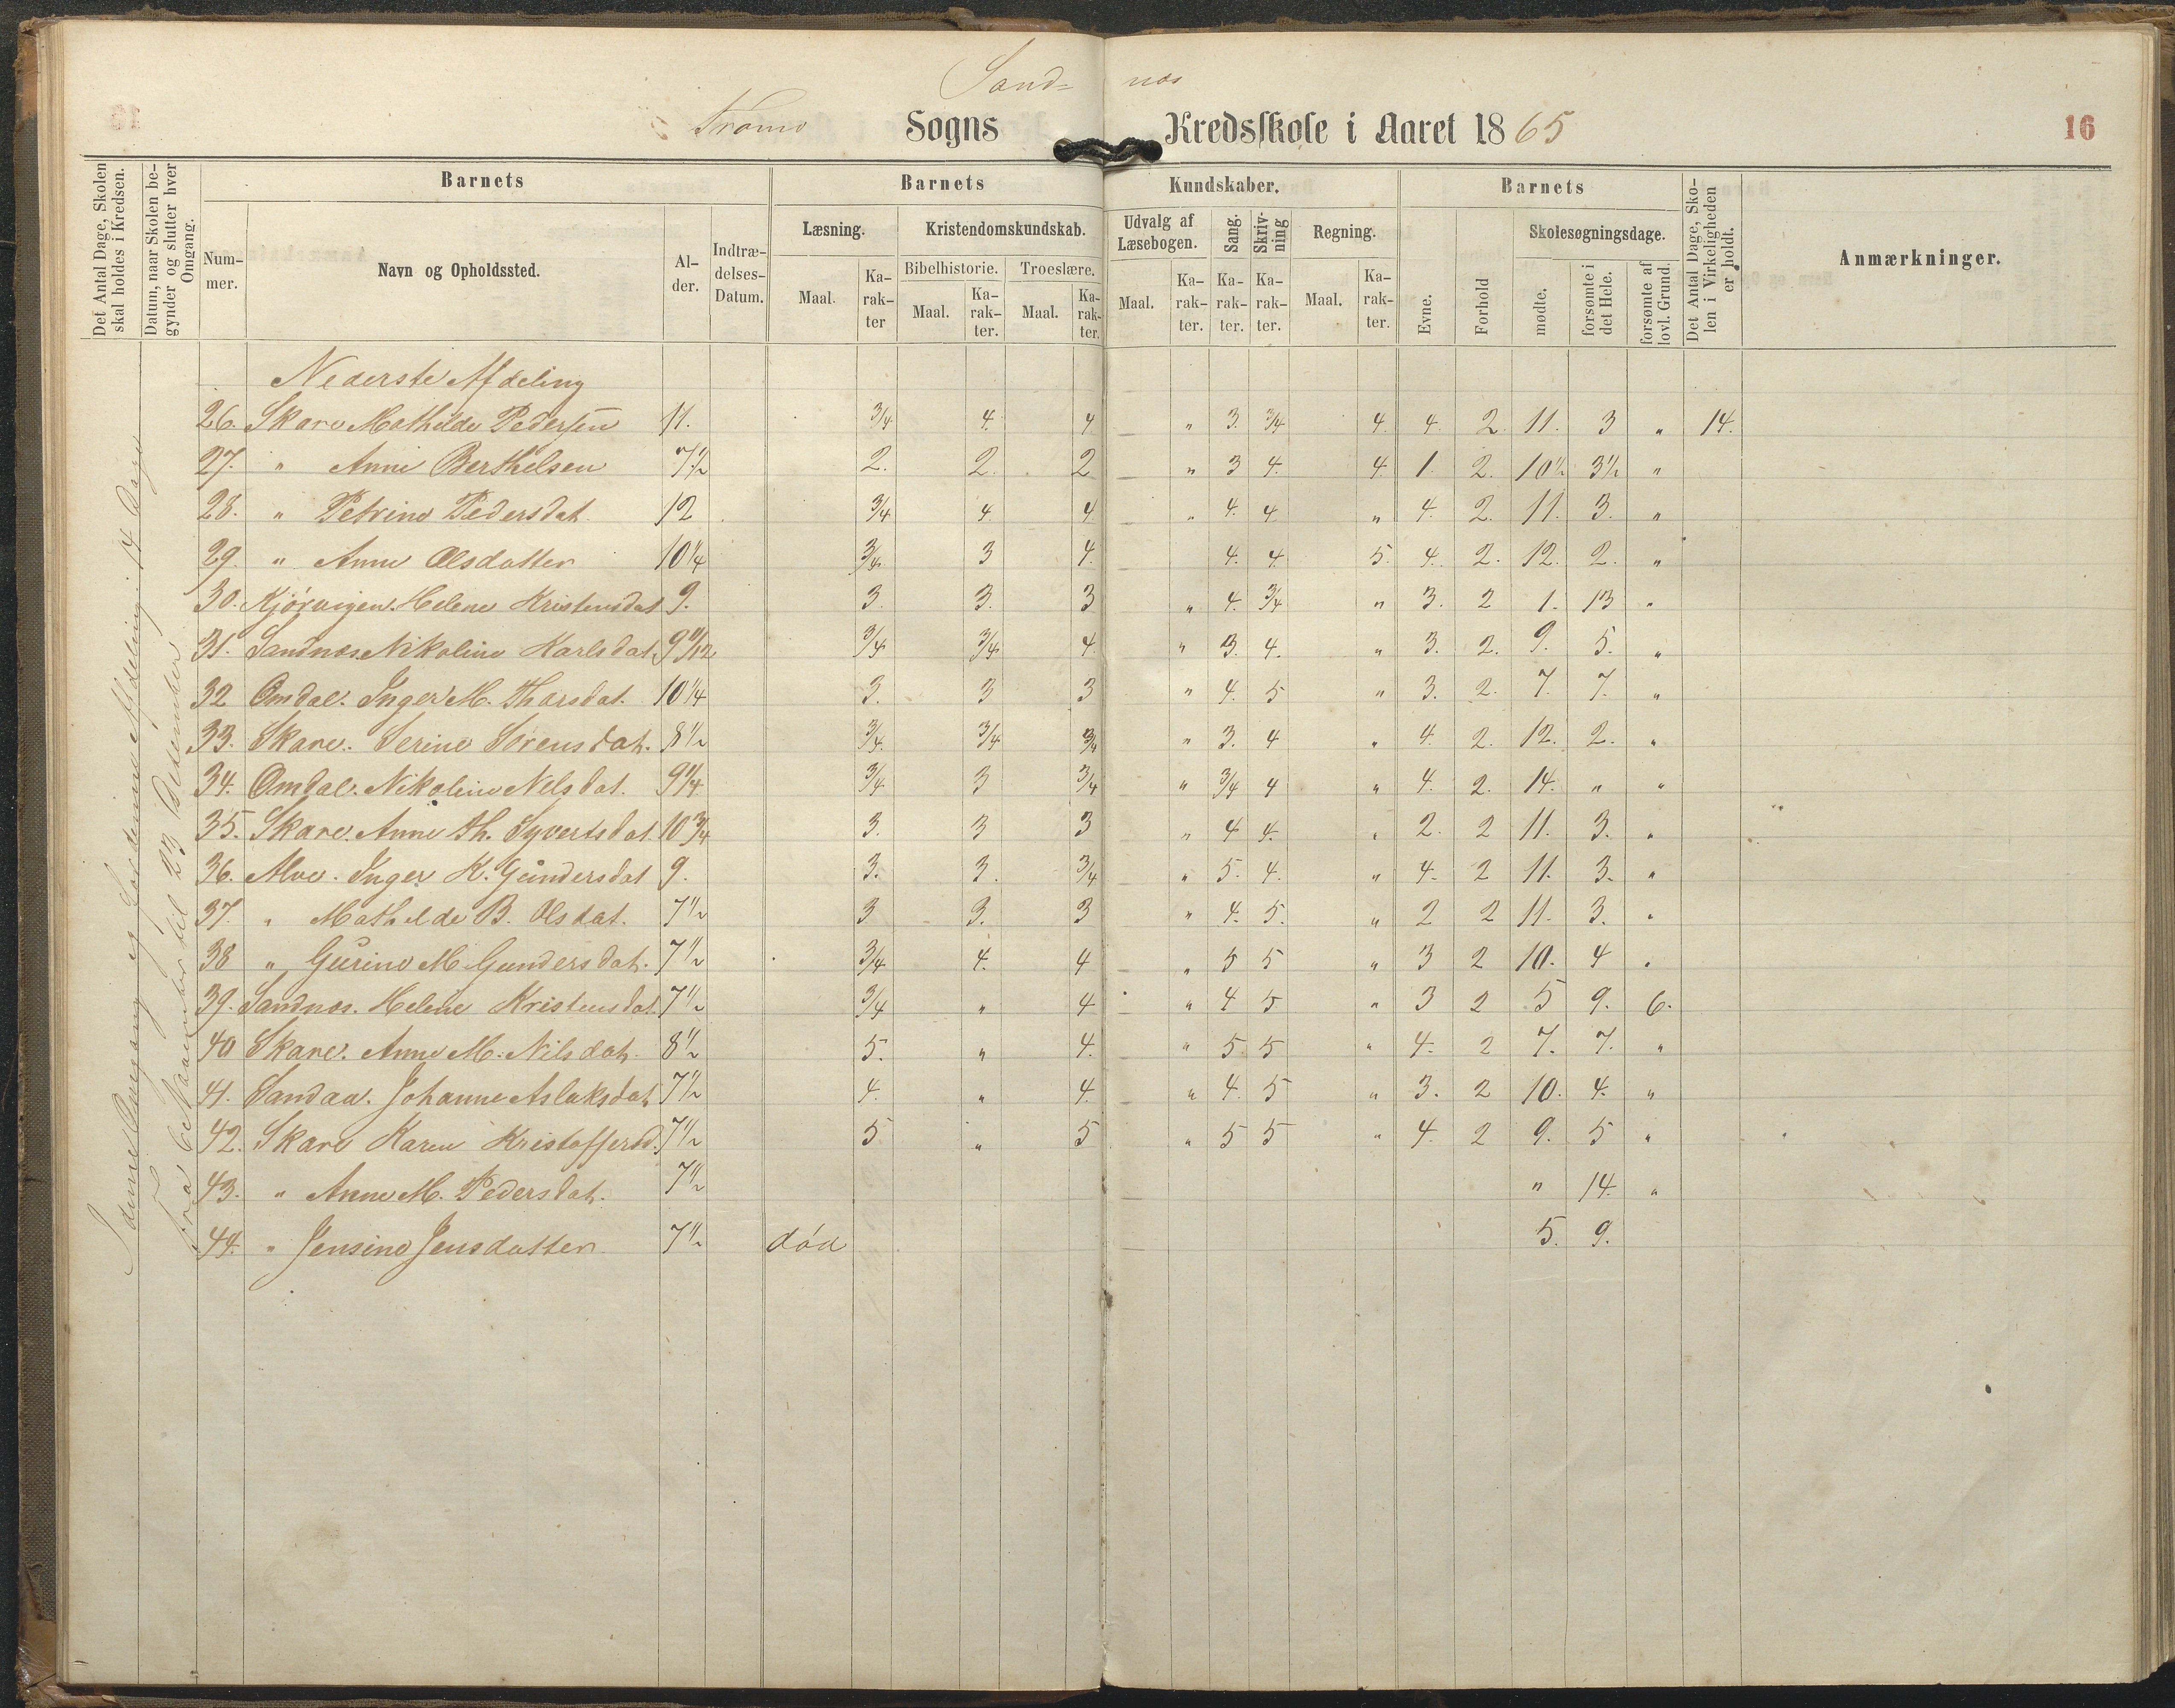 Sand= næs
Tromø Sogns Kredsskole i Aaret 1865 16
Det Antal Dage, Skolen skal holdes i Kredsen.
Datum, naar Skolen begynder og slutter hver Omgang.
Barnets Barnets Kundskaber. Barnets
Det Antal Dage, Skolen i Virkeligheden er holdt.
Anmærkninger.
Nummer. Navn og Opholdssted. Alder. Indtrædelses-Datum.
Læsning. Kristendomskundskab. Udvalg af Læsebogen. Sang. Skrivning Regning. Evne. Forhold Skolesøgningsdage.
Bibelhistorie. Troeslære.
Maal. Karakter Maal. Karakter. Maal. Karakter. Maal. Karakter. Karakter. Karakter. Maal. Karakter. mødte. forsømte i det Hele. forsømte af lovl. Grund.
Nederste Afdeling
26. Skare Mathilde Pedersen 11. 3/4 4. 4 " 3. 3/4 4. 4. 2. 11. 3 " 14.
27. " Anne Berthelsen 7 1/2 2. 2. 2 " 3 4. 4 1. 2. 10 1/2 3 1/2 "
28. " Petrine Pedersdat. 12 3/4 4. 4. " 4. 4 " 4. 2. 11. 3. "
29. " Anne Olsdatter 10 1/4 3/4 3 4. 4. 4. 5. 4. 2. 12. 2. "
30. Kjørvigen. Helene Kristensdat 9. 3. 3. 3 " 4. 3/4 " 3. 2 1. 13 "
31. Sandnæs Nikoline Karlsdat. 9 11/12 3/4 3/4 4. " 3. 4. " 3. 2. 9. 5. "
32 Omdal. Inger M. Tharsdat. 10 1/4 3. 3 3 " 4. 5 " 3. 2. 7. 7. "
33. Skare. Serine Sørensdat. 8 1/2 3/4 3/4 3/4 " 3. 4 " 4. 2. 12. 2. "
34. Omdal. Nikoline Nelsdat. 9 1/4 3/4 3 3/4 " 3/4 4 " 4. 2. 14. " "
35. Skare. Anne Th. Syvertsdat. 10 3/4 3. 3 3 " 4 4. " 2. 2 11. 3. "
36. Alve. Inger K. Gundersdat 9. 3. 3. 3/4 " 5. 4. " 4. 2 11. 3. "
37. " Mathilde B. Olsdat. 7 1/2 3 3. 3 " 4. 5. " 2 2 11. 3. "
38 " Gurine M. Gundersdat. 7 1/2 3/4 4. 4 " 5 5 " 3 2 10. 4 "
39. Sandnæs. Helene Kristensdat. 7 1/2 3/4 " 4 " 4 5. " 3 2 5 9. 6.
40 Skare. Anne M. Nilsdat. 8 1/2 5. " 4. " 5. 5 " 4. 2 7. 7. "
41. Sandaa. Johanne Aslaksdat 7 1/2 4. " 4. " 4. 5 " 3. 2 10. 4. "
42. Skare Karen Kristoffersd. 7 1/2 5 " 5 " 5 5 " 4. 2 9. 5 "
43. " Anne M. Pedersdat. 7 1/2 " 14. "
44. " Jensine Jensdatter 7 1/2 død 5. 9.
Omgang og Afdeling: 14 Dage
fra 6 November til 23 Desember